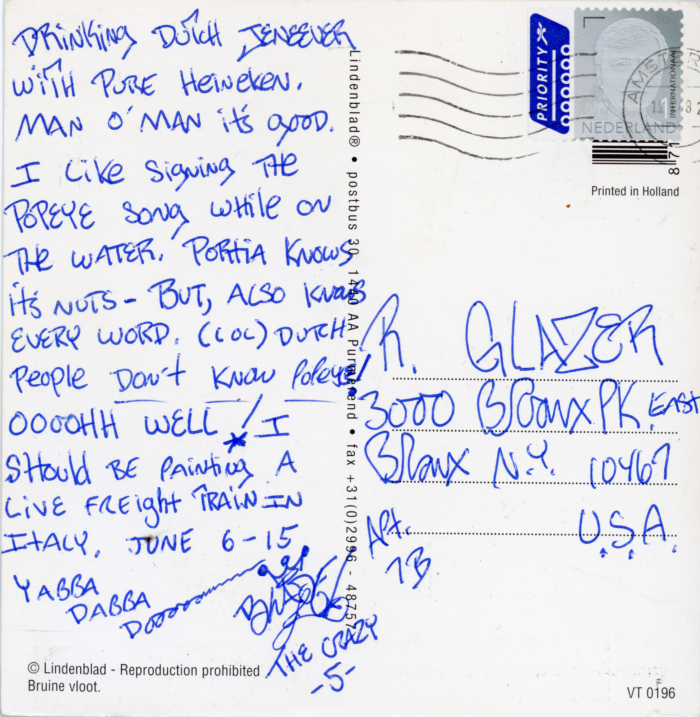 DRINKING DUTCH JENEEVER
WITH PURE HEINEKEN.
MAN O' MAN it's good.
I Like Signing THE
POPEYE SONG WHILE ON
THE WATER. PORTIA KNOWS
it's NUTS - BUT, ALSO KNOWS
EVERY WORD. (LOL) DUTCH
People Don't KNOW POPEYE!
OOOOHH WELL! I
SHOULD BE PAINTING A
LIVE FREIGHT TRAIN IN
ITALY, JUNE 6-15
YABBA
DABBA
THE CRAZY
-5-
© Lindenblad - Reproduction prohibited
Bruine vloot.
Lindenblad® • postbus 30 1440 AA Purmerend • fax +31(0)2996 - 48757
PRIORITY
1
INTERNATIONAAL
NEDERLAND
AMST
8 71
Printed in Holland
R. GLAZER
3000 BRONX PK. EAST
BRONX N.Y. 10467
Apt.
7B
U.S.A.
VT 0196